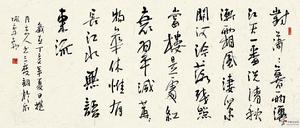 對瀟瀟暮雨灑
江天一番洗清秋
漸霜風淒緊
關河冷落殘照
當樓是處紅
衰翠減苒苒
物華休惟有
長江水無語
東流